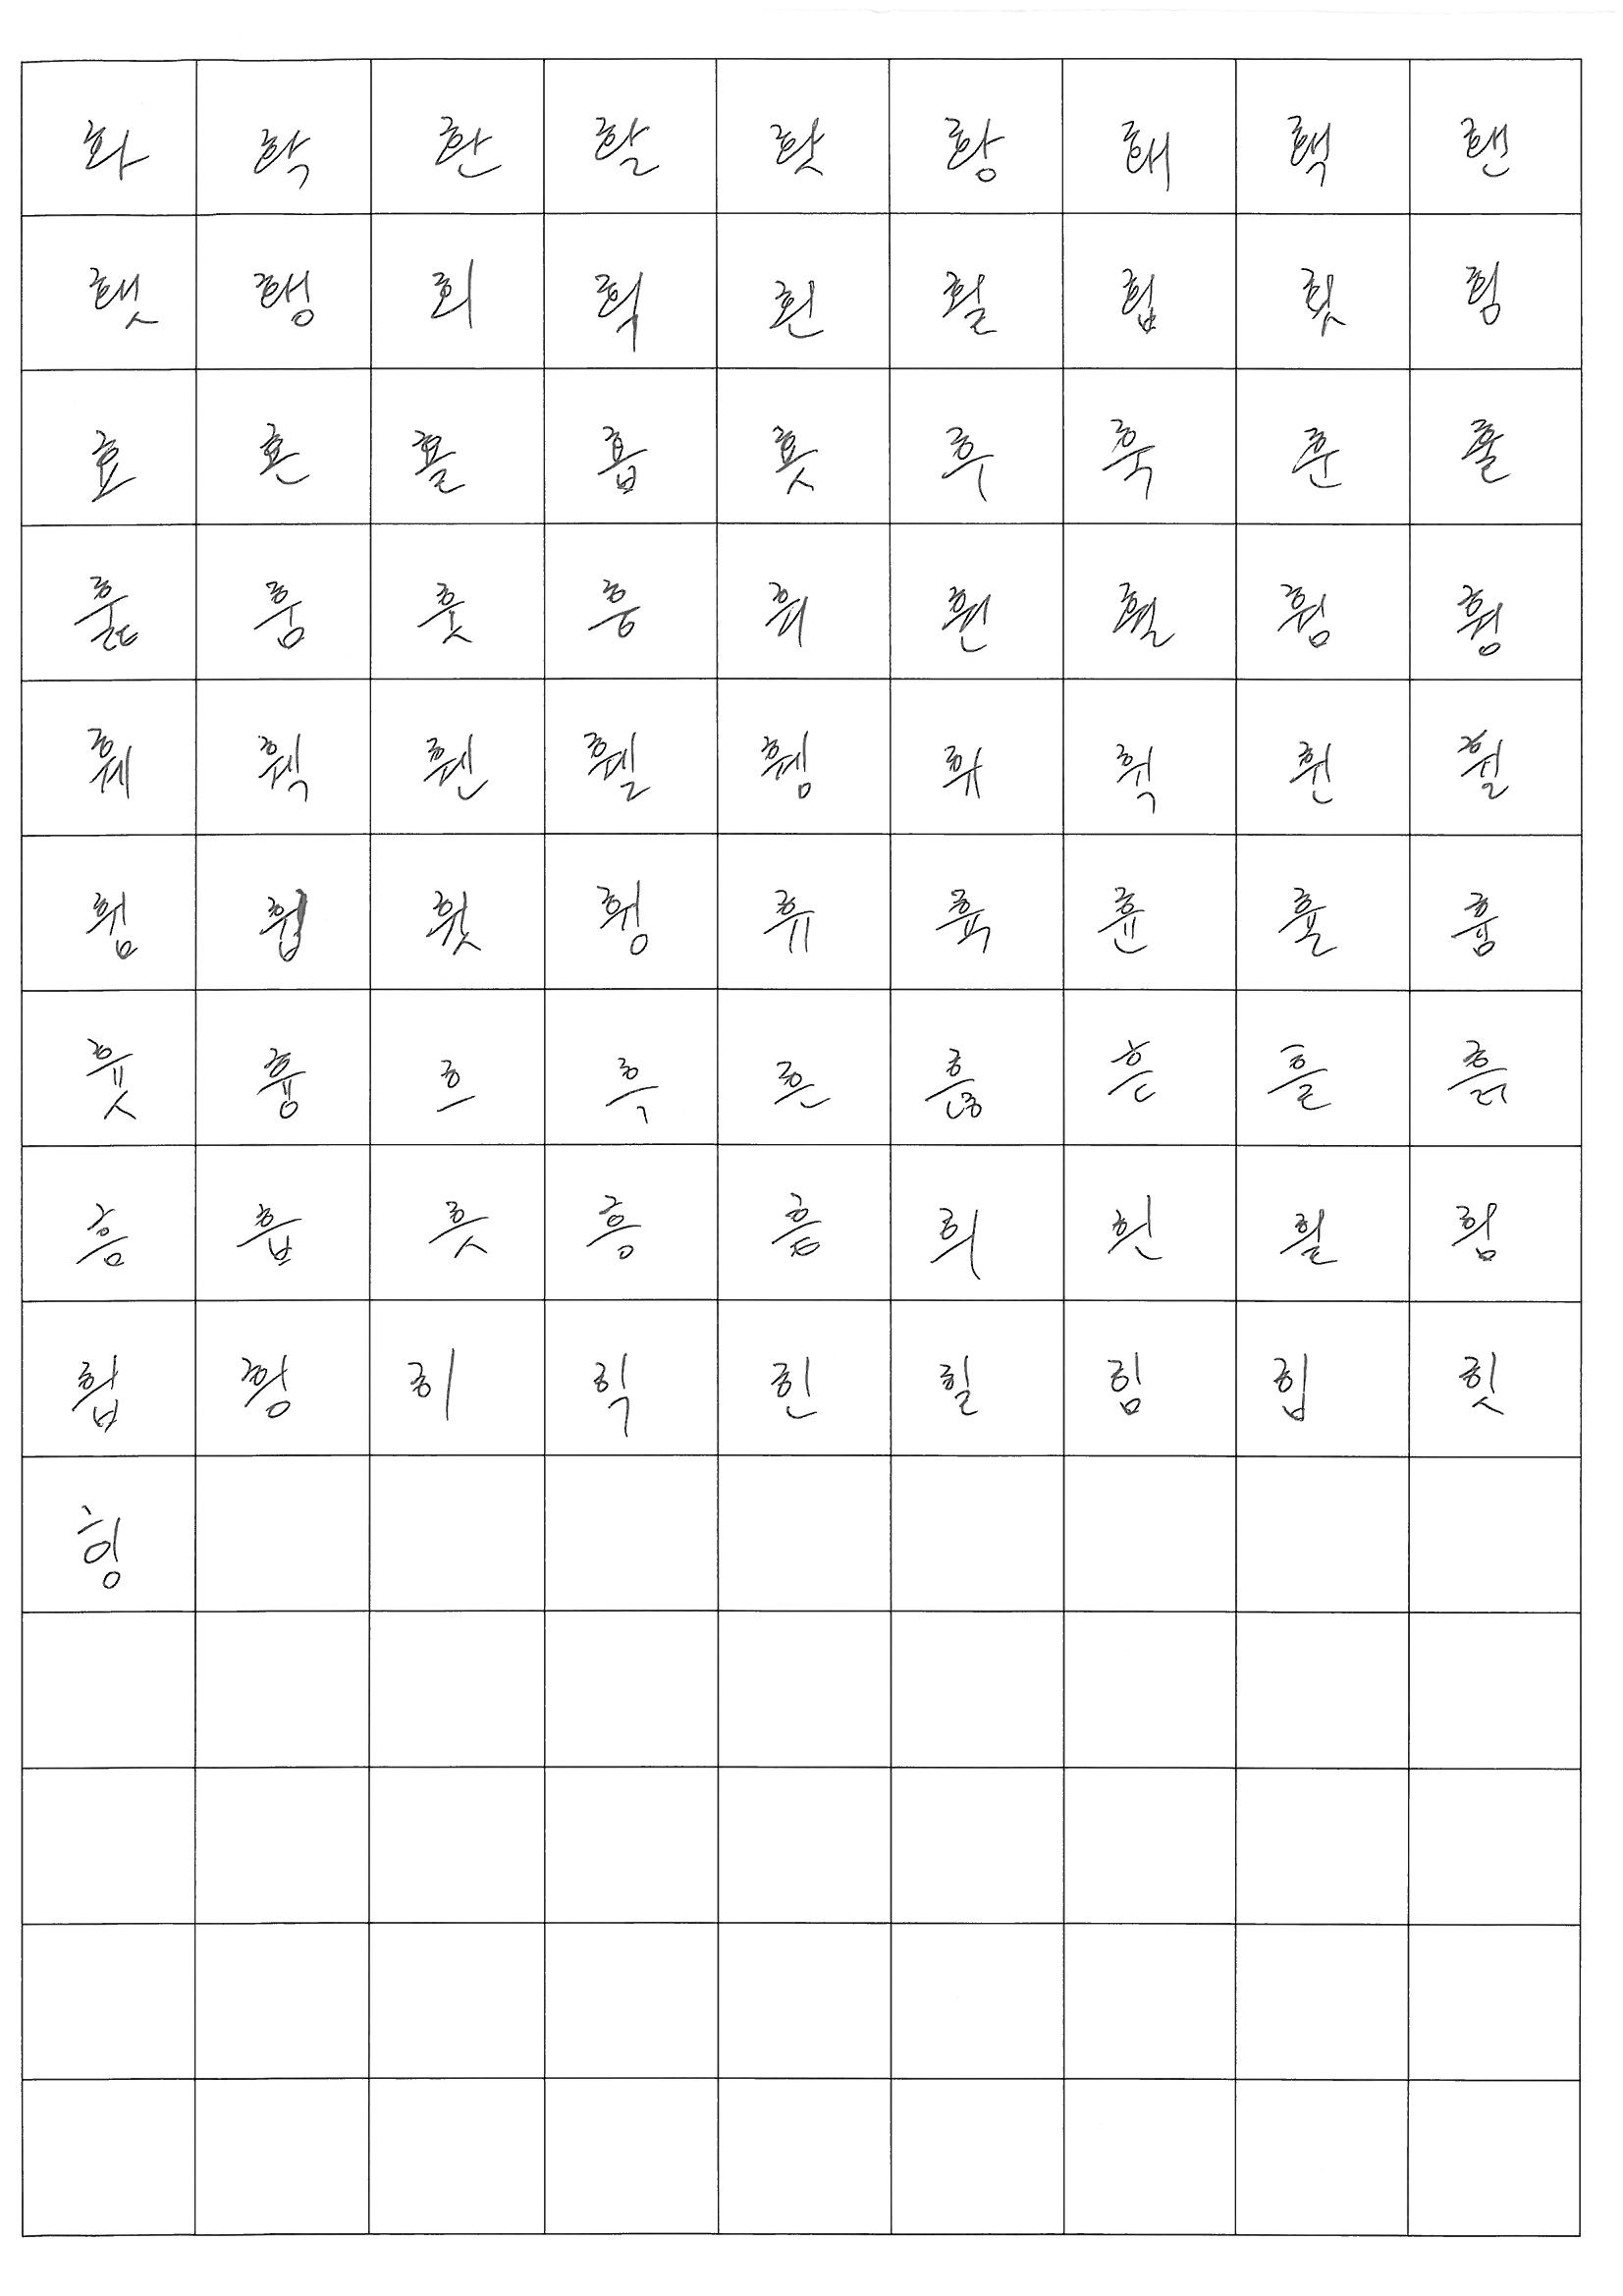 화 확 환 활 홧 황 홰 홱 홴
횃 횅 회 획 횐 횔 횝 횟 횡
효 횬 횰 횹 횻 후 훅 훈 훌
훑 훔 훗 훙 훠 훤 훨 훰 훵
훼 훽 휀 휄 휌 휘 휙 휜 휠
휨 휩 휫 휭 휴 휵 휸 휼 흄
흇 흉 흐 흑 흔 흖 흗 흘 흙
흠 흡 흣 흥 흩 희 흰 흴 흼
흽 힁 히 힉 힌 힐 힘 힙 힛
힝